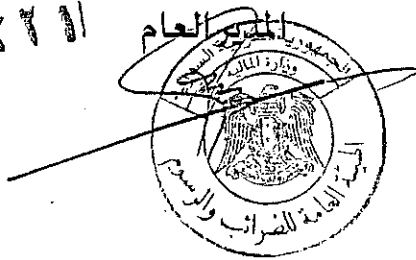 المدير العام
الجمهورية العربية السورية
وزارة المالية
الهيئة العامة للضرائب والرسوم